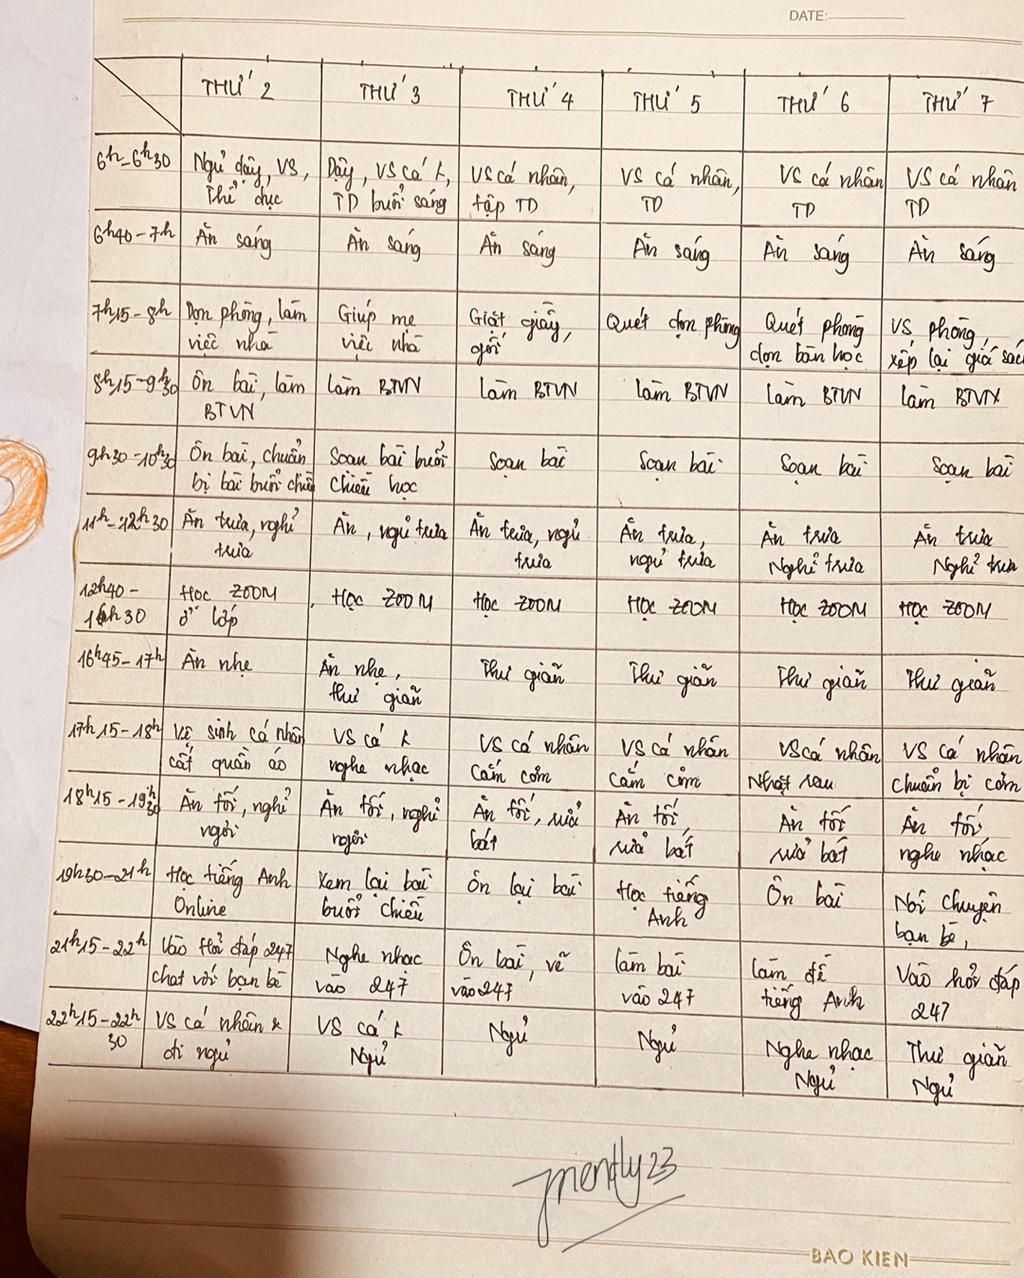 DATE:
THỨ 2 THỨ 3 THỨ 4 THỨ 5 THỨ 6 THỨ 7
6h-6h30 Ngủ dậy, VS, Dậy, VS cá k, VS cá nhân, VS cá nhân, VS cá nhân VS cá nhân
Thể dục TD buổi sáng tập TD TD TD TD
6h40-7h Ăn sáng Ăn sáng Ăn sáng Ăn sáng Ăn sáng Ăn sáng
7h15-8h Dọn phòng, làm Giúp mẹ Giặt giày, Quét dọn phòng Quét phòng VS phòng,
việc nhà việc nhà gối dọn bàn học xếp lại giá sác
8h15-9h30 Ôn bài, làm làm BTVN làm BTVN làm BTVN làm BTVN làm BTVN
BTVN
9h30-10h30 Ôn bài, chuẩn Soạn bài buổi Soạn bài Soạn bài Soạn bài Soạn bài
bị bài buổi chiều chiều học
11h-12h30 Ăn trưa, nghỉ Ăn, ngủ trưa Ăn trưa, ngủ Ăn trưa, Ăn trưa Ăn trưa
trưa trưa ngủ trưa Nghỉ trưa Nghỉ trưa
12h40- Học ZOOM Học ZOOM Học ZOOM Học ZOOM Học ZOOM Học ZOOM
16h30 ở lớp
16h45-17h Ăn nhẹ Ăn nhẹ, Thư giãn Thư giãn Thư giãn Thư giãn
thư giãn
17h15-18h Vệ sinh cá nhân VS cá k VS cá nhân VS cá nhân VS cá nhân VS cá nhân
cất quần áo nghe nhạc cắm cơm cắm cơm Nhặt rau chuẩn bị cơm
18h15-19h30 Ăn tối, nghỉ Ăn tối, nghỉ Ăn tối, rửa Ăn tối Ăn tối Ăn tối,
ngơi ngơi bát rửa bát rửa bát nghe nhạc
19h30-21h Học tiếng Anh Xem lại bài ôn lại bài Học tiếng Ôn bài Nói chuyện
Online buổi chiều Anh bạn bè,
21h15-22h Vào Hỏi đáp 247 Nghe nhạc Ôn bài, vẽ làm bài làm đề Vào hỏi đáp
chat với bạn bè vào 247 vào 247 vào 247 tiếng Anh 247
22h15-22h30 VS cá nhân & VS cá k Ngủ Ngủ Nghe nhạc Thư giãn
đi ngủ Ngủ Ngủ Ngủ
BAO KIEN